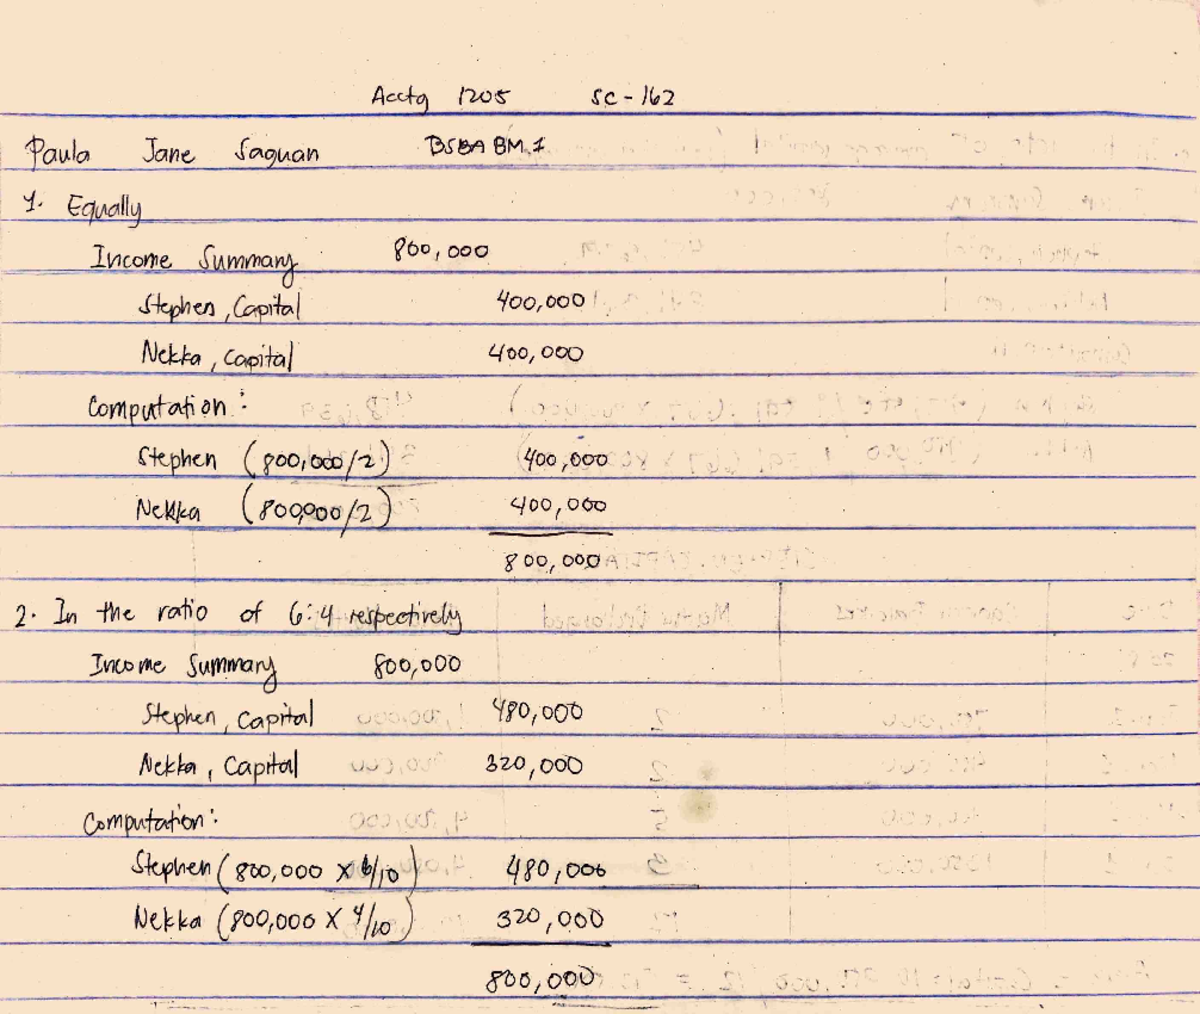 Acctg 1205 SC-162
Paula Jane Saguan BSBA BM 1
1. Equally
Income Summary 800,000
Stephen, Capital 400,000
Nekka, Capital 400,000
Computation:
Stephen (800,000/2) 400,000
Nekka (800,000/2) 400,000
800,000
2. In the ratio of 6:4 respectively
Income Summary 800,000
Stephen, Capital 480,000
Nekka, Capital 320,000
Computation:
Stephen (800,000 X 6/10) 480,000
Nekka (800,000 X 4/10) 320,000
800,000